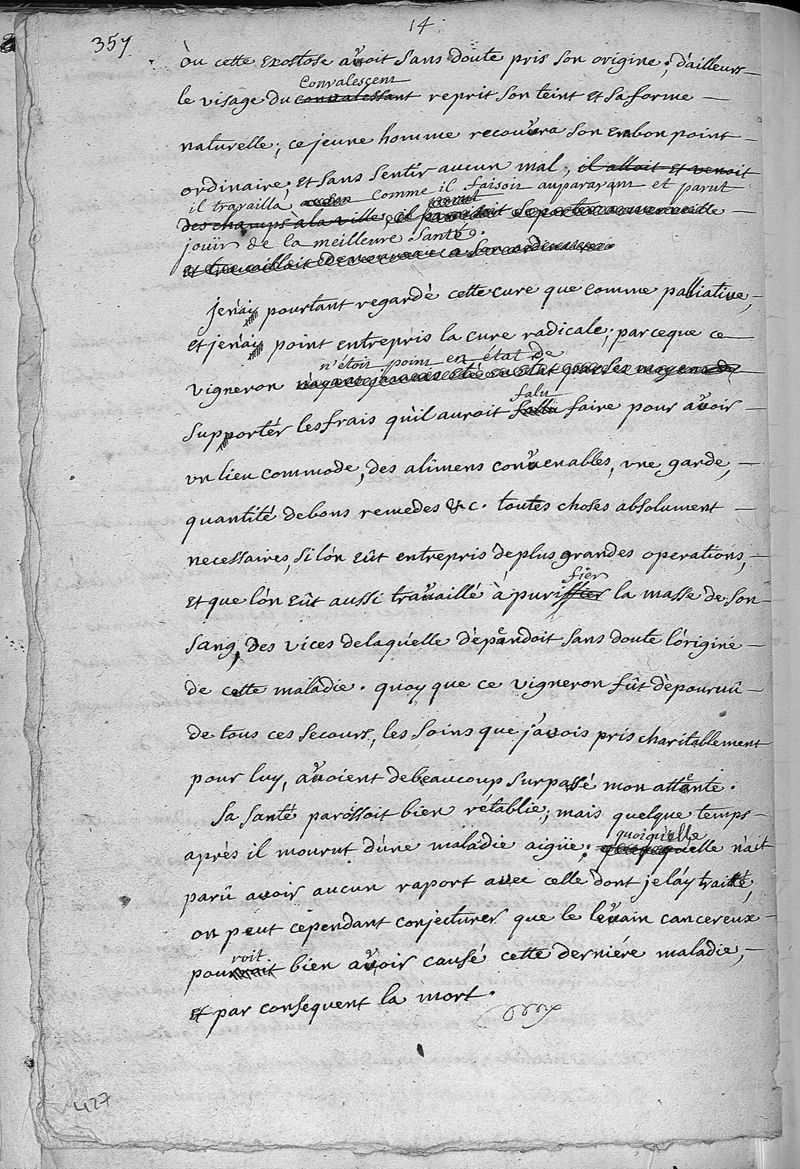 14
357
où cette Exostose avoit sans doute pris son origine; d'ailleurs
Convalescent
le visage du convalessant reprit son teint et sa forme
naturelle; ce jeune homme recouvra son enbonpoint
ordinaire; et sans sentir aucun mal, il alloit et venoit
il travailla comme il faisoit auparavant et parut
des champs a la ville, et paroissoit se porter a merveille
jouir de la meilleure Santé.
et travailloit de nouveau a son ordinaire.
je n'ay pourtant regardé cette cure que comme palliative,
et je n'ay point entrepris la cure radicale; parceque ce
n'étoit point en état de
vigneron n'ayant jamais été en état par les moyens de
falu
supporter les frais qu'il auroit fallu faire pour avoir
vn lieu commode, des alimens convenables, vne garde,
quantité de bons remedes &c. toutes choses absolument
necessaires, si l'on eût entrepris de plus grandes operations,
fier
et que l'on eût aussi travaillé à puriffier la masse de son
sang, des vices de laquelle dépendoit sans doute l'origine
de cette maladie. quoy que ce vigneron fût dépourvû
de tous ces secours, les soins que j'avois pris charitablement
pour luy, avoient de beaucoup surpassé mon attente.
Sa santé paroissoit bien rétablie; mais quelque temps
quoiqu'elle
après il mourut d'une maladie aigüe; quoyqu'elle n'ait
parû avoir aucun raport avec celle dont je l'ay traité,
on peut cependant conjecturer que le levain cancereux
roit
pourrait bien avoir causé cette derniére maladie,
et par consequent la mort.
427